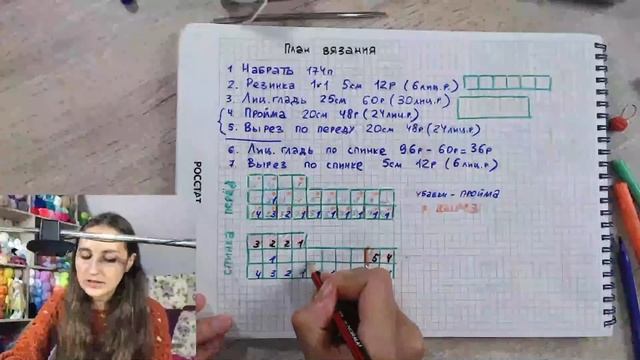 План вязания
1 Набрать 174п
2. Резинка 1×1 5см 12р (6лиц.р.)
3. Лиц.гладь 25см 60р (30лиц.р)
4. Пройма 20см 48р (24лиц.р)
5. Вырез по переду 20см 48р(24лиц.р)
6. Лиц. гладь по спинке 96р-60р=36р
7. Вырез по спинке 5см 12р (6лиц.р)
РОССТАТ
перёд
убавки-пройма
вырез
1
4 3 2 1 1 1 1 1 1 1
спинка
3 2 2 1
1 5 4
4 3 2 1